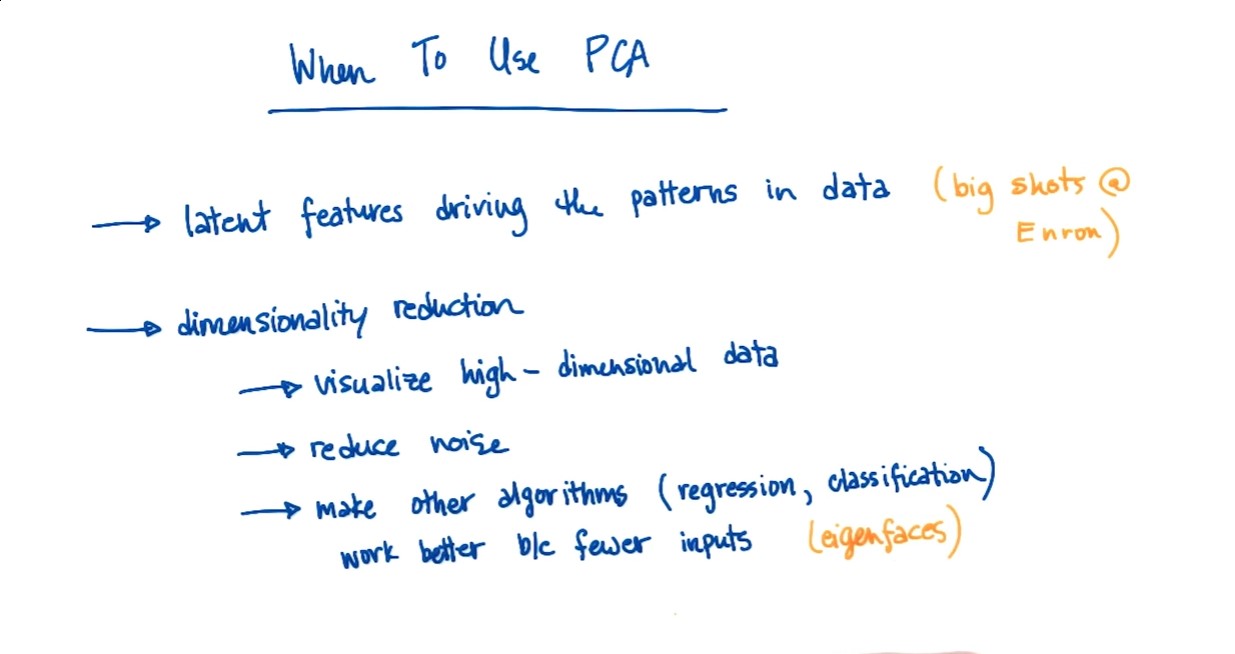 When To Use PCA
→ latent features driving the patterns in data (big shots @
Enron)
→ dimensionality reduction
→ visualize high - dimensional data
→ reduce noise
→ make other algorithms (regression, classification)
work better b/c fewer inputs (eigenfaces)